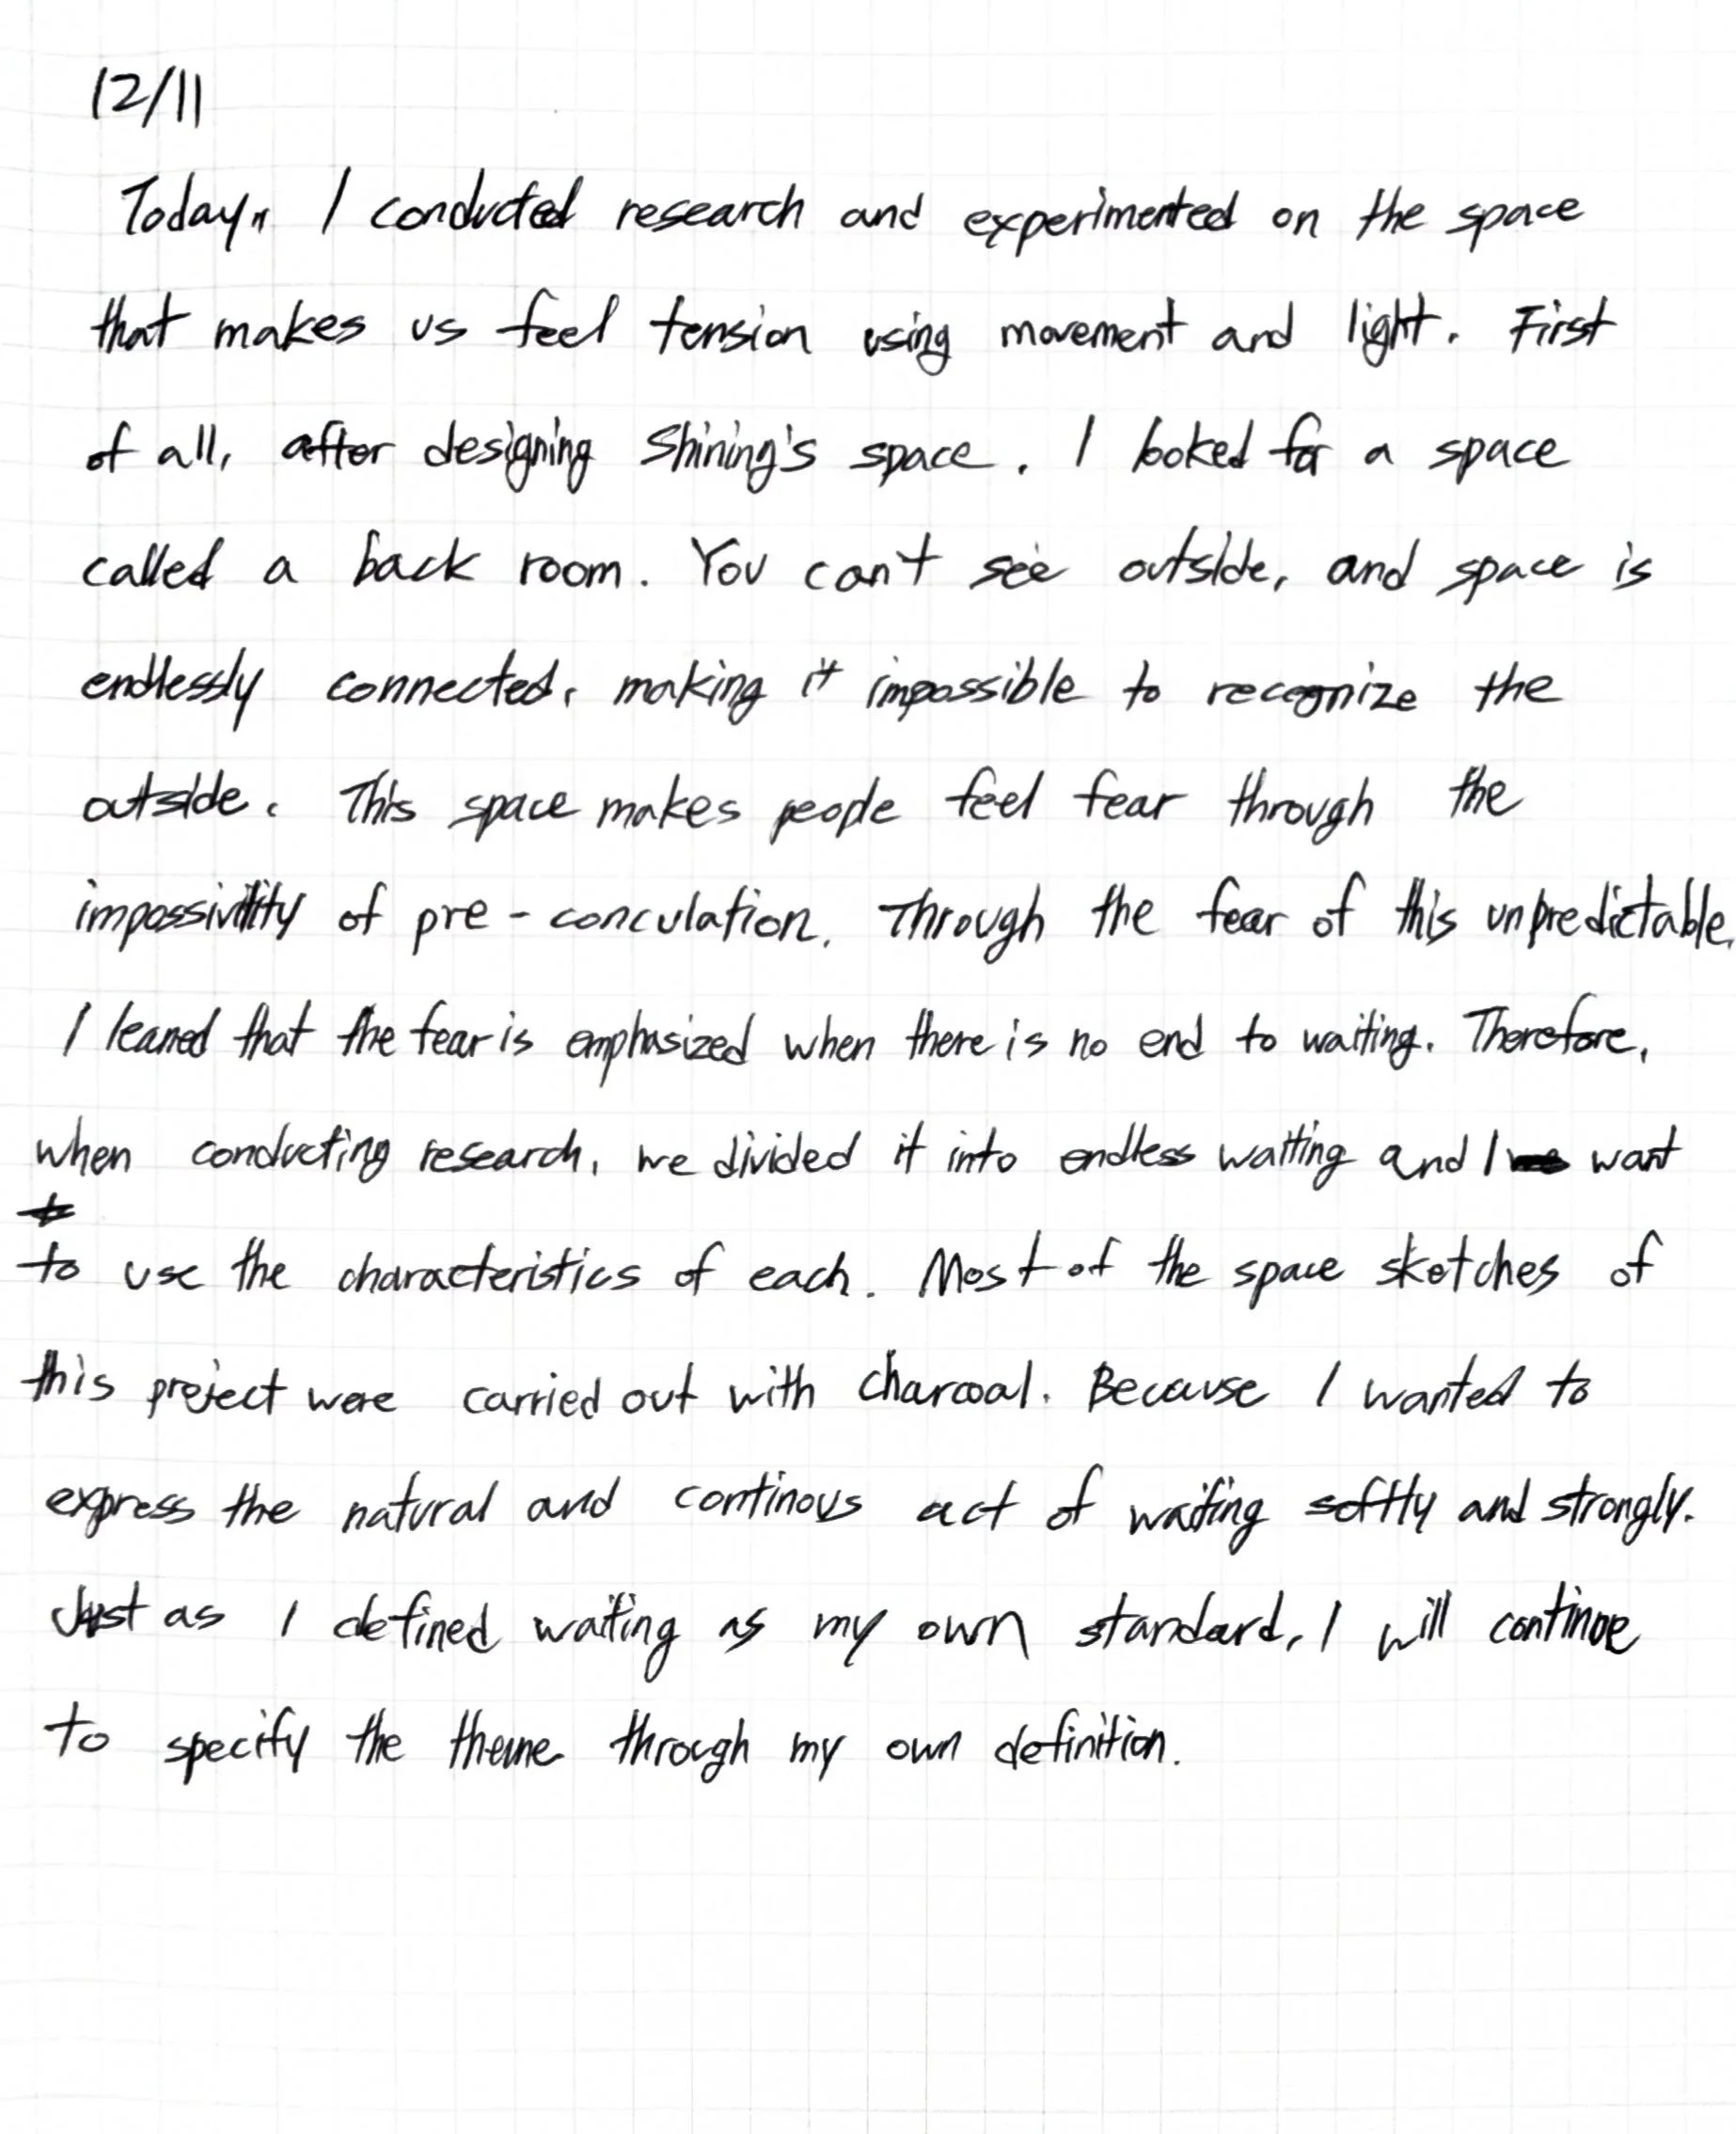 12/11
Today, I conducted research and experimented on the space
that makes us feel tension using movement and light. First
of all, after designing Shining's space. I looked for a space
called a back room. You can't see outside, and space is
endlessly connected, making it impossible to recognize the
outside. This space makes people feel fear through the
impossivility of pre-conculation. Through the fear of this unpredictable,
I leaned that the fear is emphasized when there is no end to waiting. Therefore,
when conducting research, we divided it into endless waiting and I want
to use the characteristics of each. Most of the space sketches of
this project were carried out with charcoal. Because I wanted to
express the natural and continous act of waiting softly and strongly.
Just as I defined waiting as my own standard, I will continue
to specify the theme through my own definition.